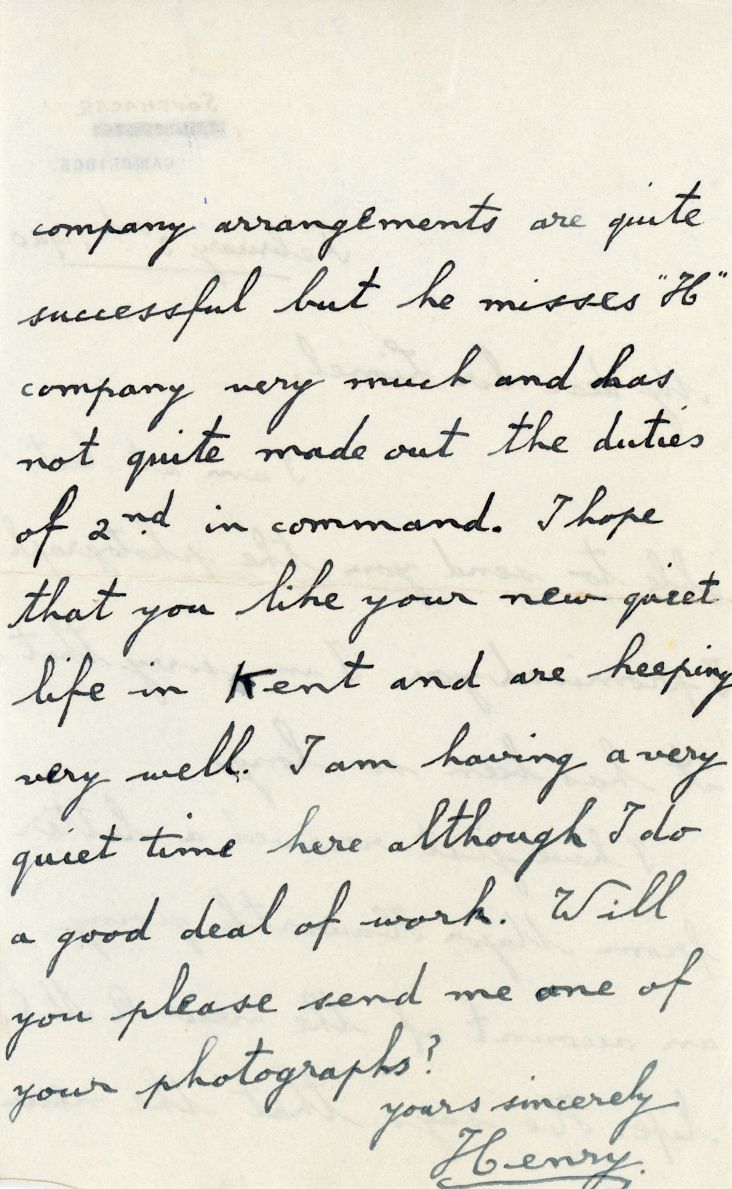 company arrangements are quite
successful but he misses "H"
company very much and has
not quite made out the duties
of 2nd in command. I hope
that you like your new quiet
life in Kent and are keeping
very well. I am having a very
quiet time here although I do
a good deal of work. Will
you please send me one of
your photographs?
yours sincerely
Henry.